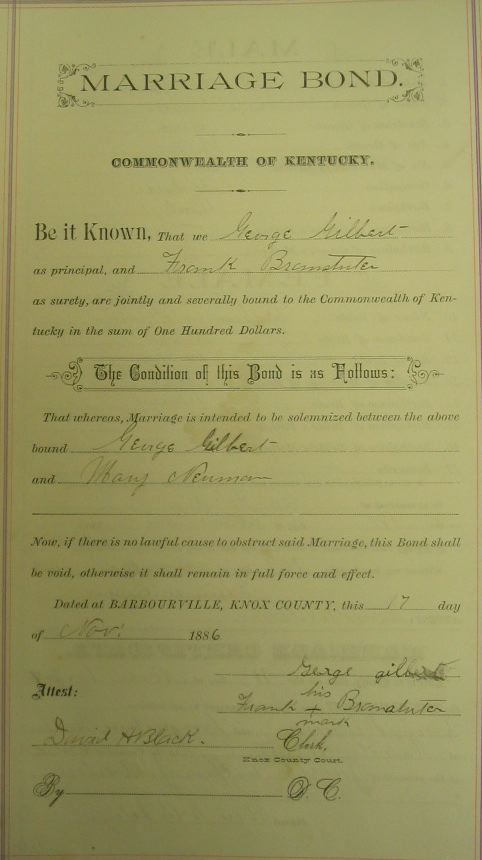 MARRIAGE BOND.
COMMONWEALTH OF KENTUCKY.
Be it Known, That we George Gilbert
as principal, and Frank
as surety, are jointly and severally bound to the Commonwealth of Ken-
tucky in the sum of One Hundred Dollars.
The Condition of this Bond is as Follows:
That whereas, Marriage is intended to be solemnized between the above
bound George Gilbert
and Mary Neuman
Now, if there is no lawful cause to obstruct said Marriage, this Bond shall
be void, otherwise it shall remain in full force and effect.
Dated at BARBOURVILLE, KNOX COUNTY, this 17 day
of Nov. 1886
George gilbert
Attest:
his
Frank +
mark
David H Black. Clerk,
Knox County Court.
By D. C.